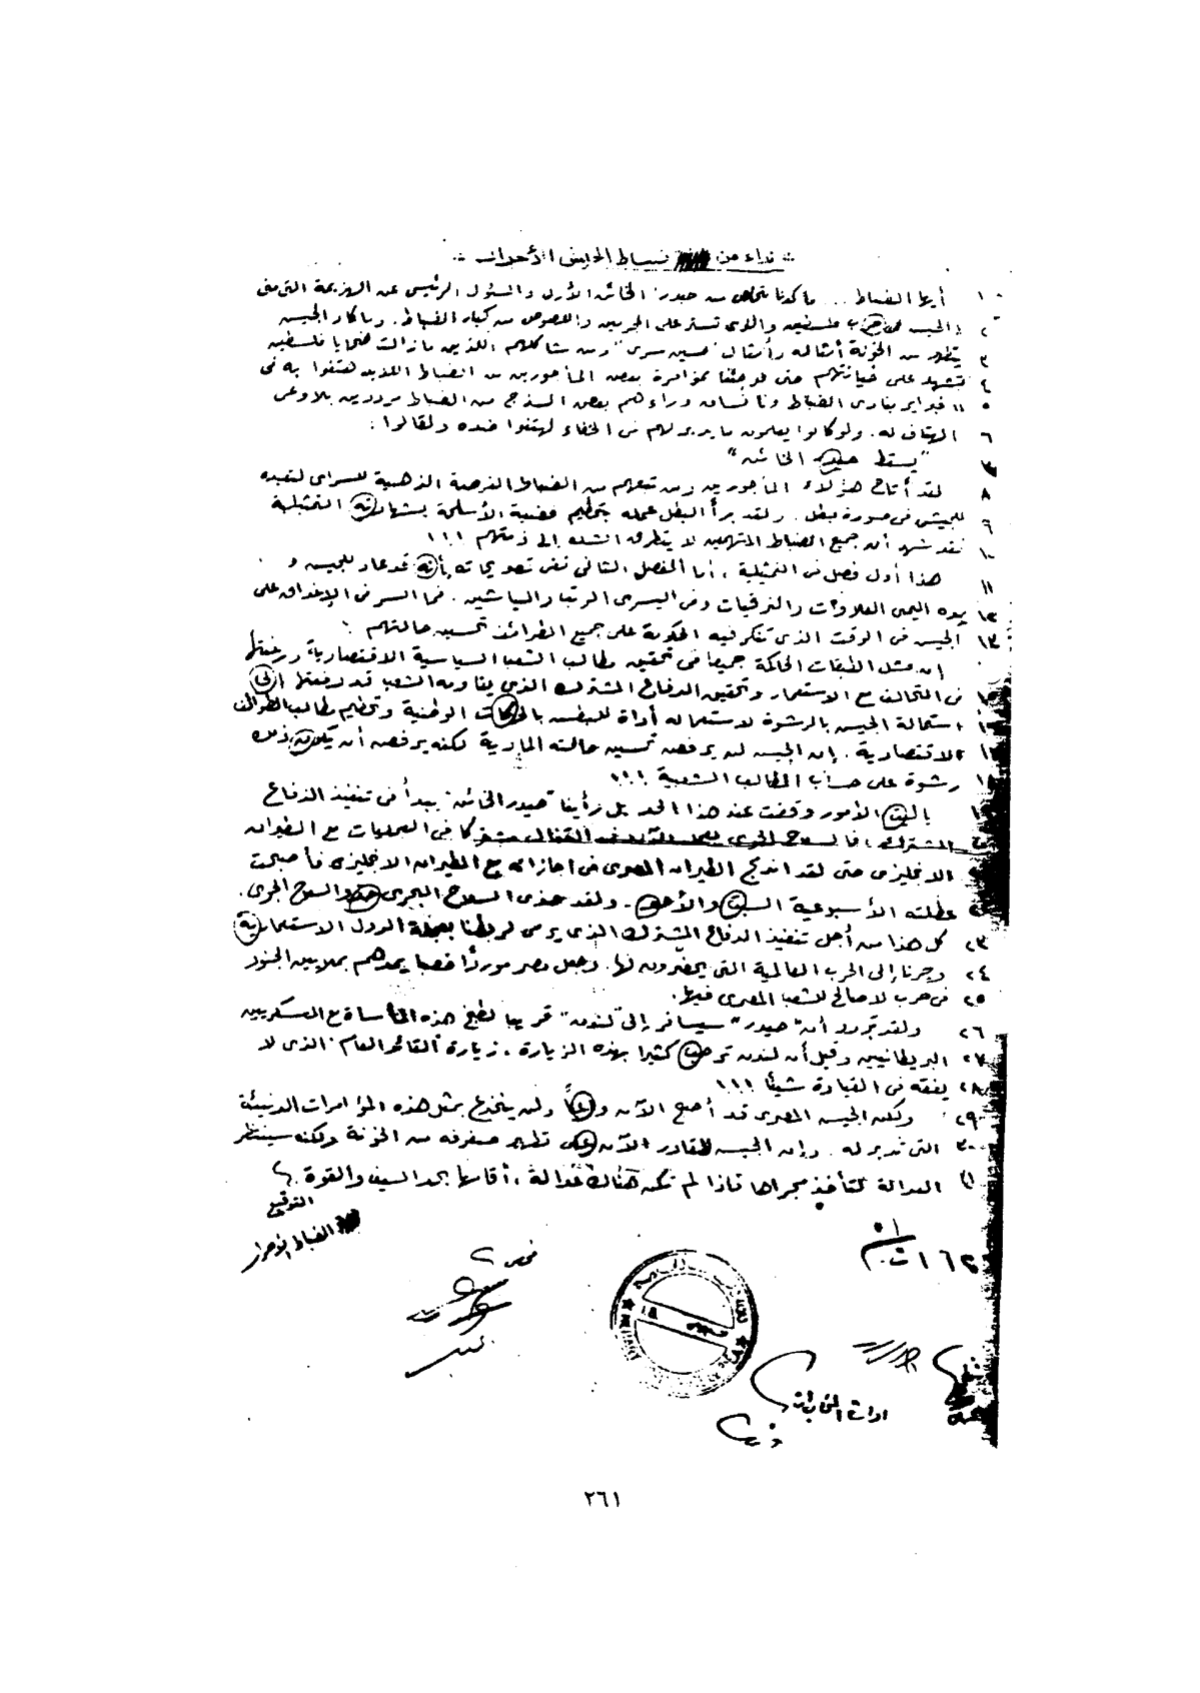 نداء من ضباط الجيش الأحرار
١ أيها الضباط .. ما كدنا نتخلص من حيدر الخائن الأول والمسئول الرئيسي عن الهزيمة التي مني
٢ بها الجيش في حرب فلسطين والذي تستر على المجرمين واللصوص من كبار الضباط. وما كاد الجيش
٣ يتطهر من الخونة أمثاله وأمثال "حسين سرى" ومن شاكلهم اللذين ما زالت ضحايا فلسطين
٤ تشهد على خيانتهم حتى فوجئنا بمؤامرة بعض المأجورين من الضباط اللذين هتفوا به في
٥ ١١ فبراير بنادى الضباط وانساق وراءهم بعض السذج من الضباط مرددين بلا وعى
٦ الهتاف له. ولو كانوا يعلمون ما يدبر لهم في الخفاء لهتفوا ضده ولقالوا :
٧ "يسقط حيدر الخائن"
٨ لقد أتاح هؤلاء المأجورين ومن تبعهم من الضباط الفرصة الذهبية للسراى لتعيده
٩ للجيش في صورة بطل. ولقد برأ البطل عمله بتحطيم قضية الأسلحة بشهادته التمثيلية
١٠ فقد شهد أن جميع الضباط المتهمين لا يتطرق الشك إلى ذمتهم !!!
١١ هذا أول فصل في التمثيلية ، أما الفصل الثاني ففي تصريحاته بأنه قد عاد للجيش و
١٢ بيده اليمنى العلاوات والترقيات وفي اليسرى الرتب والنياشين. فما السر في الإغداق على
١٣ الجيش في الوقت الذى تفكر فيه الحكومة على جميع الطوائف تحسين حالتهم ؟
إن فشل الطبقات الحاكمة جميعا في تحقيق مطالب الشعب السياسية الاقتصادية ورغبتها
في التحالف مع الاستعمار وتحقيق الدفاع المشترك الذى يقاومه الشعب قد دفعتها إلى
استمالة الجيش بالرشوة لاستعماله أداة للبطش بالحركات الوطنية وتحطيم مطالب الطوائف
الاقتصادية. إن الجيش لن يرفض تحسين حالته المادية لكنه يرفض أن يكون ذلك
رشوة على حساب المطالب الشعبية !!!
ياليت الأمور وقفت عند هذا الحد بل رأينا "حيدر الخائن" يبدأ في تنفيذ الدفاع
المشترك ، فالسلاح الجوى يعمل الآن في القنال مشتركا في العمليات مع الطيران
الانجليزى حتى لقد اندمج الطيران المصرى في اجازاته مع الطيران الانجليزى فأصبحت
عطلته الأسبوعية السبت والأحد. ولقد حذى السلاح البحرى حذو السلاح الجوى.
٢٣ كل هذا من أجل تنفيذ الدفاع المشترك الذى يرمى لربطنا بعجلة الدول الاستعمارية
٢٤ وجرنا إلى الحرب العالمية التي يحضرون لها. وجعل مصر موردًا خصبا يمدهم بملايين الجنود
٢٥ في حرب لا صالح للشعب المصرى فيها.
٢٦ ولقد تردد أن "حيدر" سيسافر إلى "لندن" قريبا لطبخ هذه المأساة مع العسكريين
٢٧ البريطانيين وقيل أن لندن ترحب كثيرا بهذه الزيارة، زيارة "القائد العام" الذى لا
٢٨ يفقه في القيادة شيئا !!!
٢٩ ولكن الجيش المصرى قد أصبح الآن واعيًا ولن ينخدع بمثل هذه المؤامرات الدنيئة
٣٠ التي تدبر له. وإن الجيش لقادر الآن على تطهير صفوفه من الخونة ولكنه سينتظر
٣١ العدالة لتأخذ مجراها فإذا لم تكن هناك عدالة، أقامها بحد السيف والقوة.
التوقيع
الضباط الأحرار
ادارة المخابرات
٢٦١